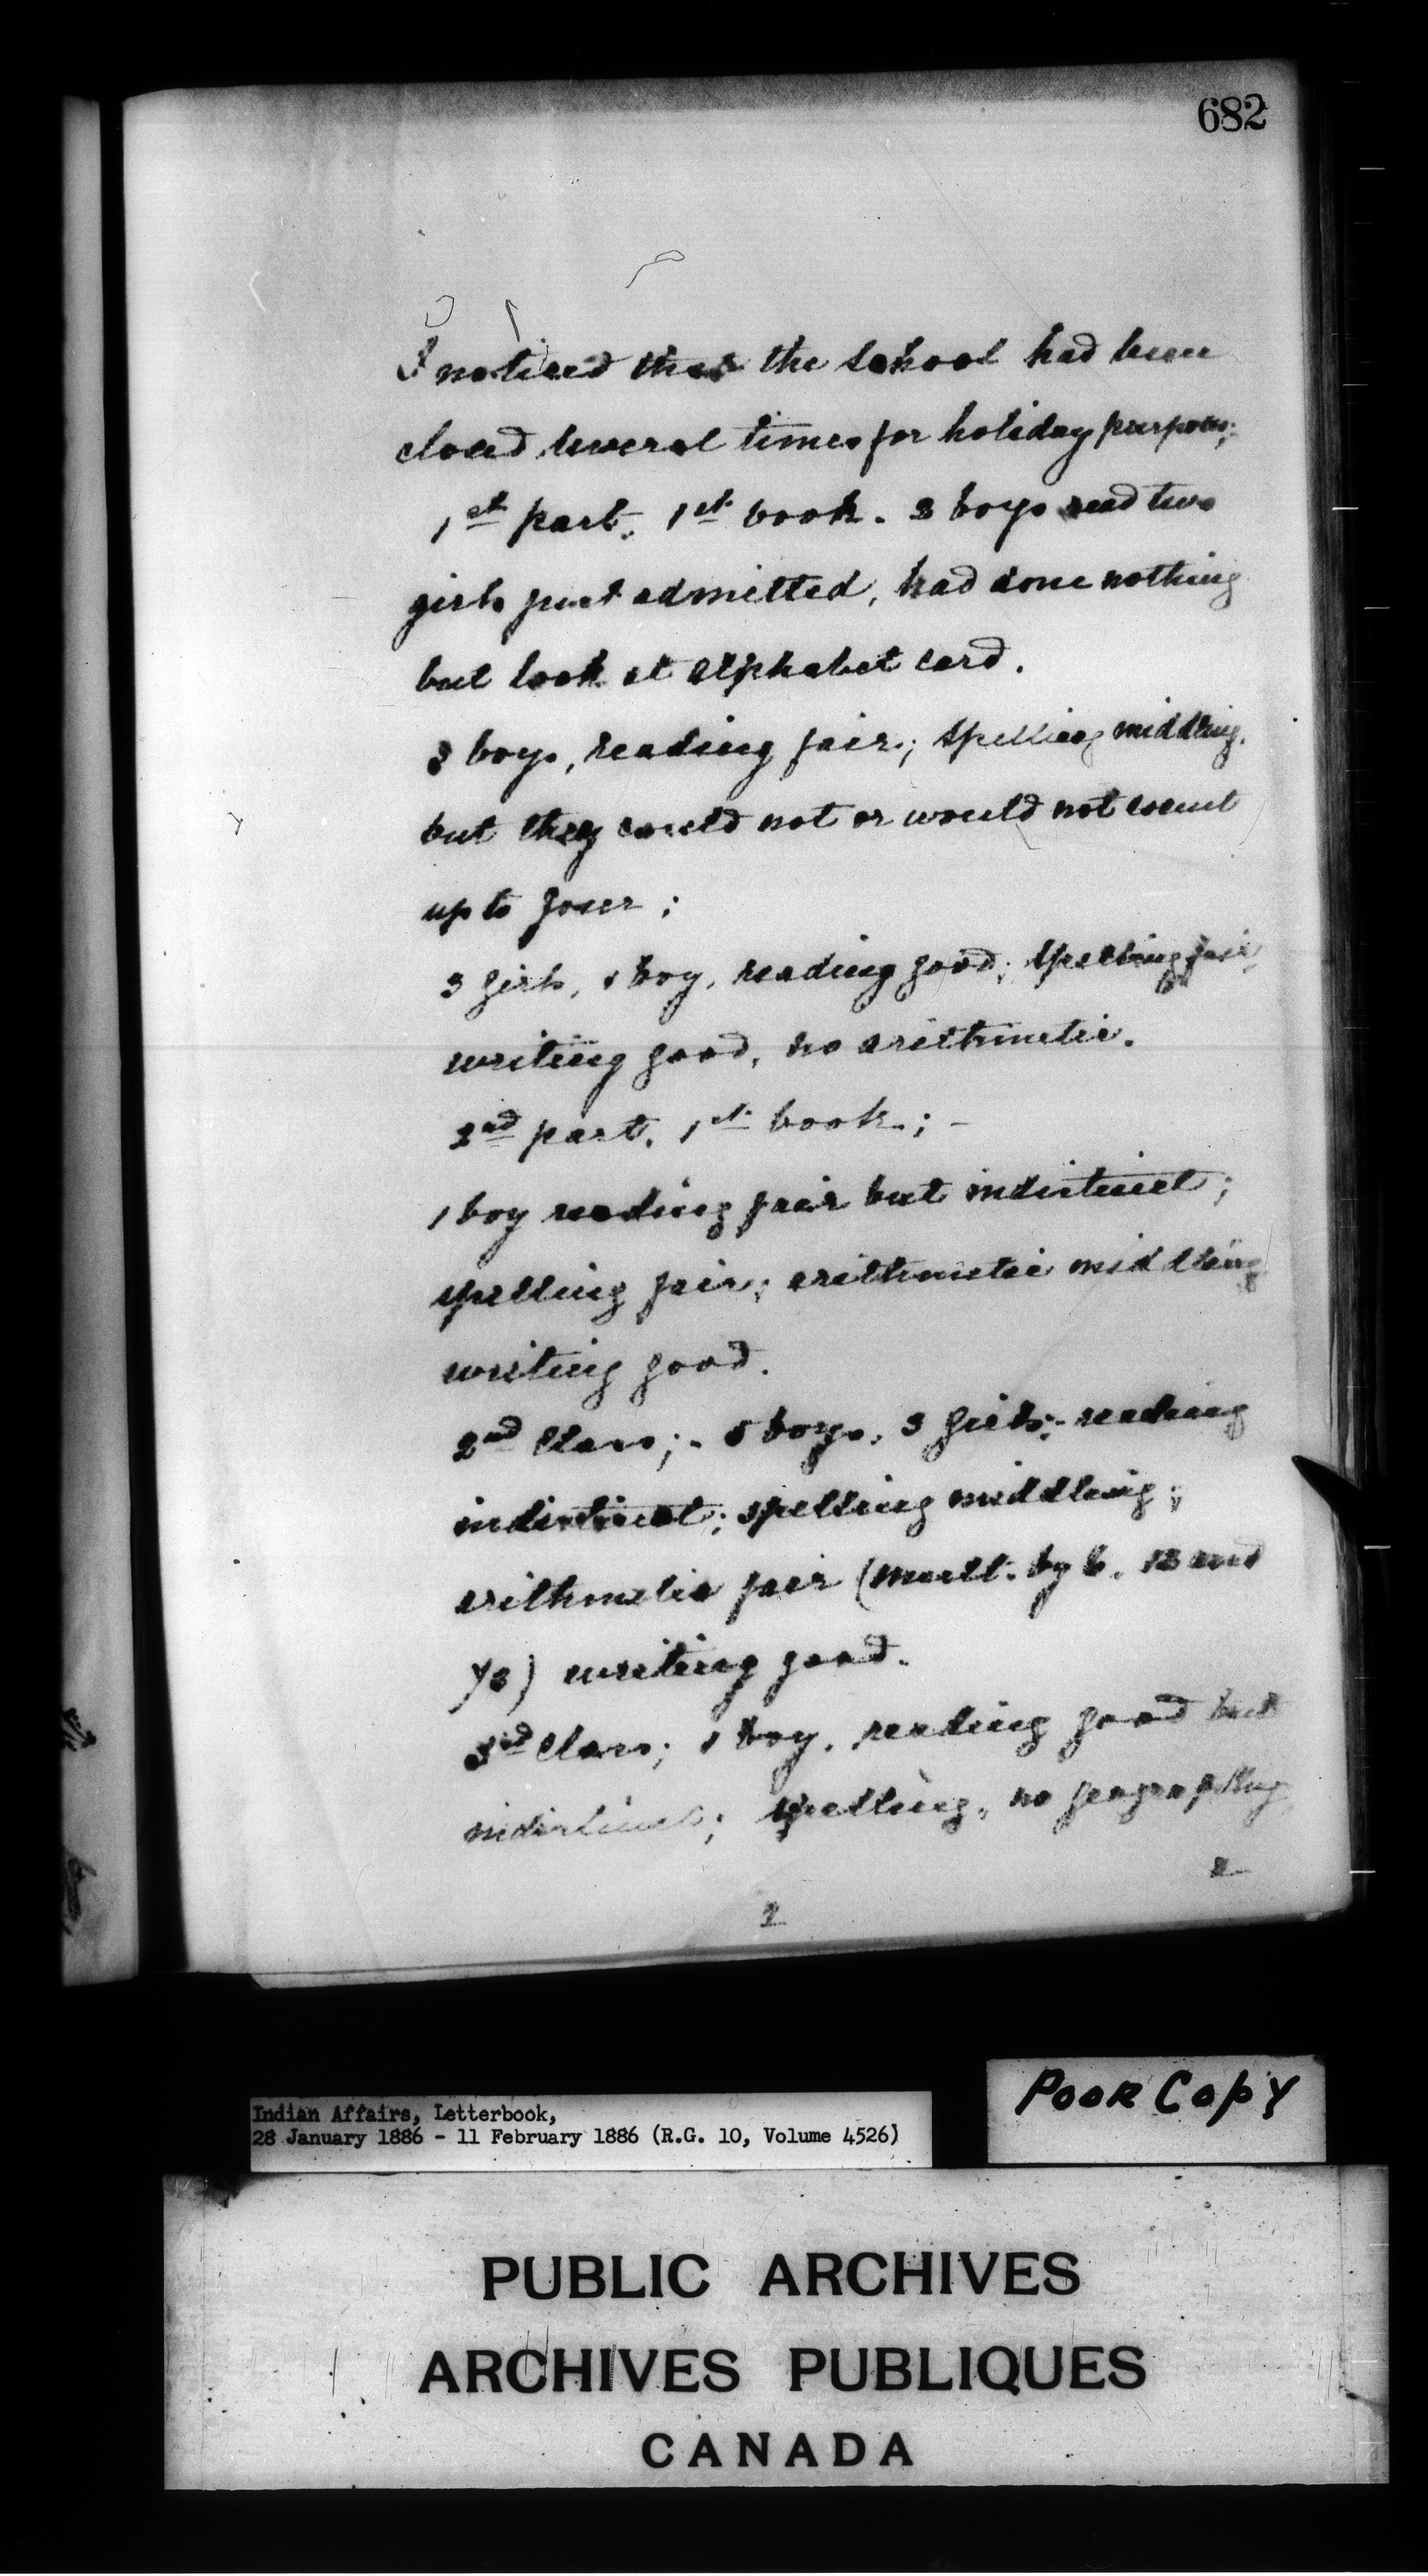 682
I noticed that the school had been
closed several times for holiday purposes;
1st part, 1st book. 3 boys and two
girls just admitted, had done nothing
but look at alphabet card.
3 boys, reading fair; spelling middling,
but they could not or would not count
up to four;
3 girls, 1 boy, reading good; spelling fair,
writing good, no arithmetic.
2nd part, 1st book; -
1 boy reading fair but indistinct;
spelling fair; arithmetic middling
writing good.
2nd Class; - 5 boys, 3 girls; - reading
indistinct; spelling middling;
arithmetic fair (mult: by 6, 12 and
) writing good.
3rd Class; 1 boy, reading good but
indistinct; spelling, no geography
2
2
Indian Affairs, Letterbook,
28 January 1886 - 11 February 1886 (R.G. 10, Volume 4526)
POOR COPY
PUBLIC ARCHIVES
ARCHIVES PUBLIQUES
CANADA